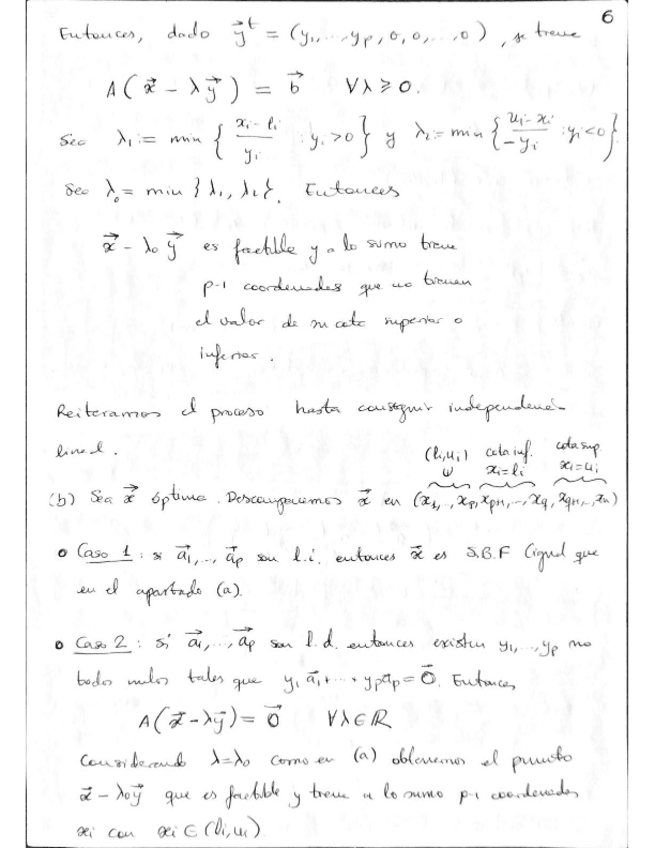 6
Entonces, dado y⃗ᵗ = (y₁,...,yₚ,0,0,...,0), se tiene
A(x⃗ - λy⃗) = b⃗ ∀λ ≥ 0.
Sea λ₁ := min { (xᵢ - lᵢ)/yᵢ : yᵢ > 0 } y λ₂ := min { (uᵢ - xᵢ)/(-yᵢ) : yᵢ < 0 }.
Sea λ₀ = min {λ₁, λ₂}. Entonces
x⃗ - λ₀ y⃗ es factible y a lo sumo tiene
p-1 coordenadas que no tienen
el valor de su cota superior o
inferior.
Reiteramos el proceso hasta conseguir independencia
lineal.
(lᵢ,uᵢ) cota inf. cota sup.
xᵢ = lᵢ xᵢ = uᵢ
(b) Sea x⃗ óptima. Descomponemos x⃗ en (x₁,..,xₚ,xₚ₊₁,..,x_q,x_q₊₁,..,xₙ)
o Caso 1: si a⃗₁,..,a⃗ₚ son l.i. entonces x⃗ es S.B.F (igual que
en el apartado (a).
o Caso 2: si a⃗₁,..,a⃗ₚ son l.d. entonces existen y₁,..,yₚ no
todos nulos tales que y₁a⃗₁+...+yₚaₚ = 0⃗. Entonces,
A(x⃗ - λy⃗) = 0⃗ ∀λ∈ℝ
Considerando λ=λ₀ como en (a) obtenemos el punto
x⃗ - λ₀y⃗ que es factible y tiene a lo sumo p-1 coordenadas
xᵢ con xᵢ ∈ (lᵢ,uᵢ)